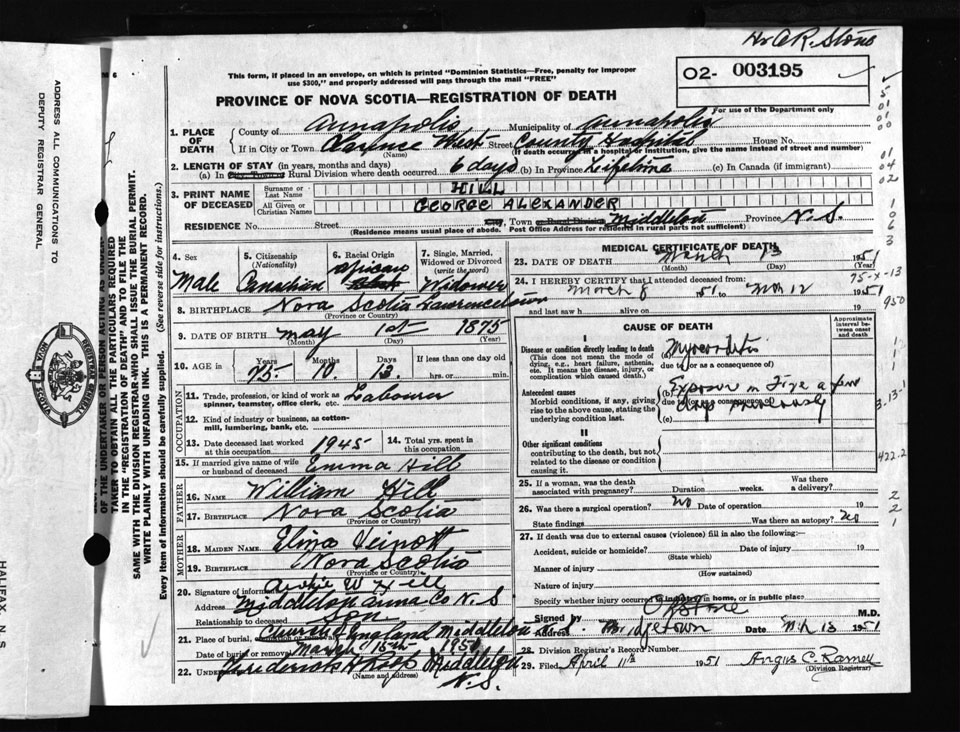 Dr A.R. Stone
This form, if placed in an envelope, on which is printed "Dominion Statistics—Free, penalty for improper
use $300," and properly addressed will pass through the mail "FREE"
02- 003195
For use of the Department only
PROVINCE OF NOVA SCOTIA—REGISTRATION OF DEATH
1. PLACE OF DEATH
County of Annapolis Municipality of Annapolis
If in City or Town Clarence West Street County Hospital House No.
(Name) (If death occurred in a hospital or institution, give the name instead of street and number)
2. LENGTH OF STAY (in years, months and days)
(a) In Rural Division where death occurred 6 days (b) In Province Lifetime (c) In Canada (if immigrant)
3. PRINT NAME OF DECEASED
Surname or Last Name HILL
All Given or Christian Names GEORGE ALEXANDER
RESIDENCE No. Street Town or Rural Division Middleton Province N.S.
(Residence means usual place of abode. Post Office Address for residents in rural parts not sufficient)
4. Sex Male
5. Citizenship (Nationality) Canadian
6. Racial Origin African
7. Single, Married, Widowed or Divorced (write the word) Widower
8. BIRTHPLACE Nova Scotia Lawrencetown
(Province or Country)
9. DATE OF BIRTH May 1st 1875
(Month) (Day) (Year)
10. AGE in Years 75 Months 10 Days 13 If less than one day old
hrs. or min.
OCCUPATION
11. Trade, profession, or kind of work as spinner, teamster, office clerk, etc. Labourer
12. Kind of industry or business, as cotton-mill, lumbering, bank, etc.
13. Date deceased last worked at this occupation 1945
14. Total yrs. spent in this occupation
15. If married give name of wife or husband of deceased Emma Hill
FATHER
16. NAME William Hill
17. BIRTHPLACE Nova Scotia
(Province or Country)
MOTHER
18. MAIDEN NAME
19. BIRTHPLACE Nova Scotia
(Province or Country)
20. Signature of informant Archie W Hill
Address Middleton Anna. Co N.S.
Relationship to deceased Son
21. Place of burial, Church of England Middleton
Date of burial or removal March 15th 1951
22. Middleton
(Name and address) N.S.
MEDICAL CERTIFICATE OF DEATH
23. DATE OF DEATH March 13 1951
(Month) (Day) (Year)
24. I HEREBY CERTIFY that I attended deceased from:
March 8 1951 to Mch 12 1951
and last saw h alive on 19
75-X-13
950
CAUSE OF DEATH
Approximate interval between onset and death
I
Disease or condition directly leading to death
(This does not mean the mode of dying, e.g., heart failure, asthenia, etc. It means the disease, injury, or complication which caused death.)
(a) Myocarditis
due to (or as a consequence of)
Antecedent causes
Morbid conditions, if any, giving rise to the above cause, stating the underlying condition last.
(b) Exposure in Fire a few
due to (or as a consequence of)
days previously
(c)
II
Other significant conditions
contributing to the death, but not related to the disease or condition causing it.
422.2
25. If a woman, was the death associated with pregnancy? Duration weeks. Was there a delivery?
26. Was there a surgical operation? No Date of operation 19
State findings Was there an autopsy? No
27. If death was due to external causes (violence) fill in also the following:—
Accident, suicide or homicide? Date of injury 19
(State which)
Manner of injury
(How sustained)
Nature of injury
Specify whether injury occurred in industry, in home, or in public place
M.D.
Address Bridgetown Date Mch 13 1951
28. Division Registrar's Record Number
29. Filed April 11th 1951 Angus C. Ramey
(Division Registrar)
ADDRESS ALL COMMUNICATIONS TO
DEPUTY REGISTRAR GENERAL
HALIFAX, N S
REGISTRAR GENERAL
NOVA SCOTIA
OF THE UNDERTAKER OR PERSON ACTING AS UNDER-
TAKER TO OBTAIN ALL THE PARTICULARS REQUIRED
IN THE "REGISTRATION OF DEATH" AND TO FILE THE
SAME WITH THE DIVISION REGISTRAR WHO SHALL ISSUE THE BURIAL PERMIT.
WRITE PLAINLY WITH UNFADING INK. THIS IS A PERMANENT RECORD.
Every item of information should be carefully supplied. (See reverse side for instructions.)